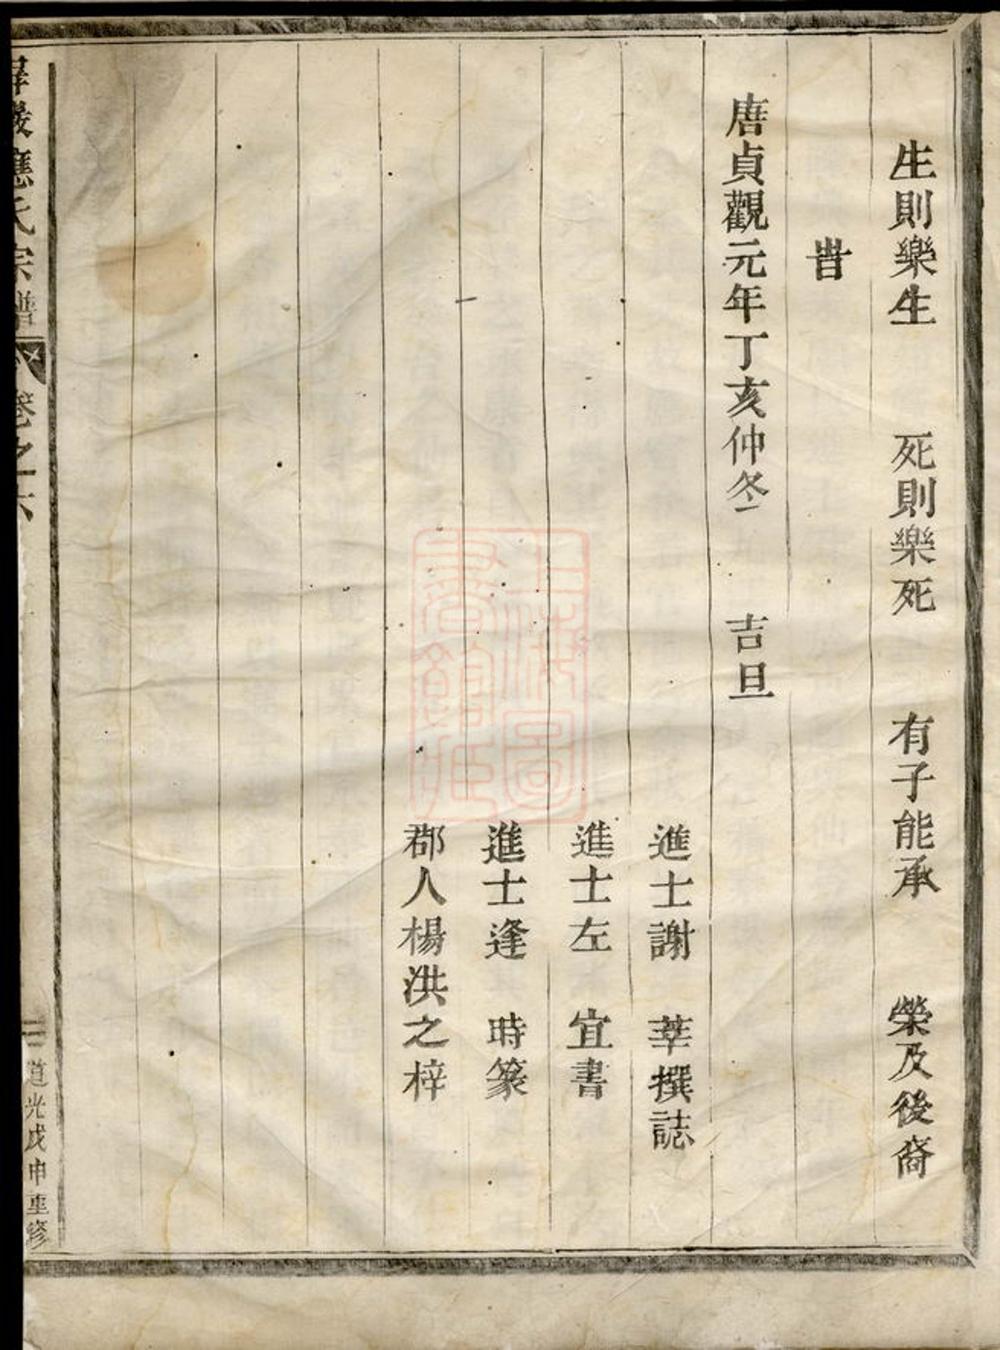 生則樂生　死則樂死　有子能承　榮及後裔
旹
唐貞觀元年丁亥仲冬　吉旦
進士謝　莘撰誌
進士左　宜書
進士逢　時篆
郡人楊洪之梓
屏巖應氏宗譜　卷之六　二　道光戊申重修
上海圖書館藏